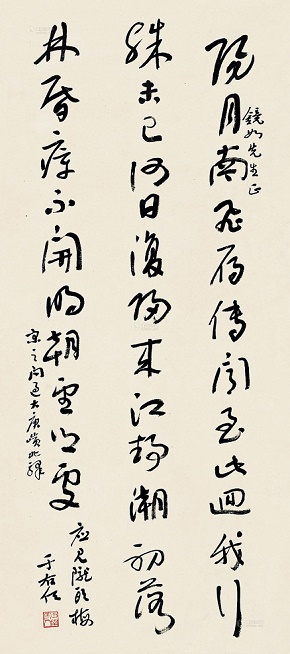 陽月南飛雁傳聞至此迴我行
鏡如先生正
殊未已何日復歸來江靜潮初落
林昏瘴不開明朝望鄉處
應見隴頭梅
宋之問過大庾嶺北驛
于右任